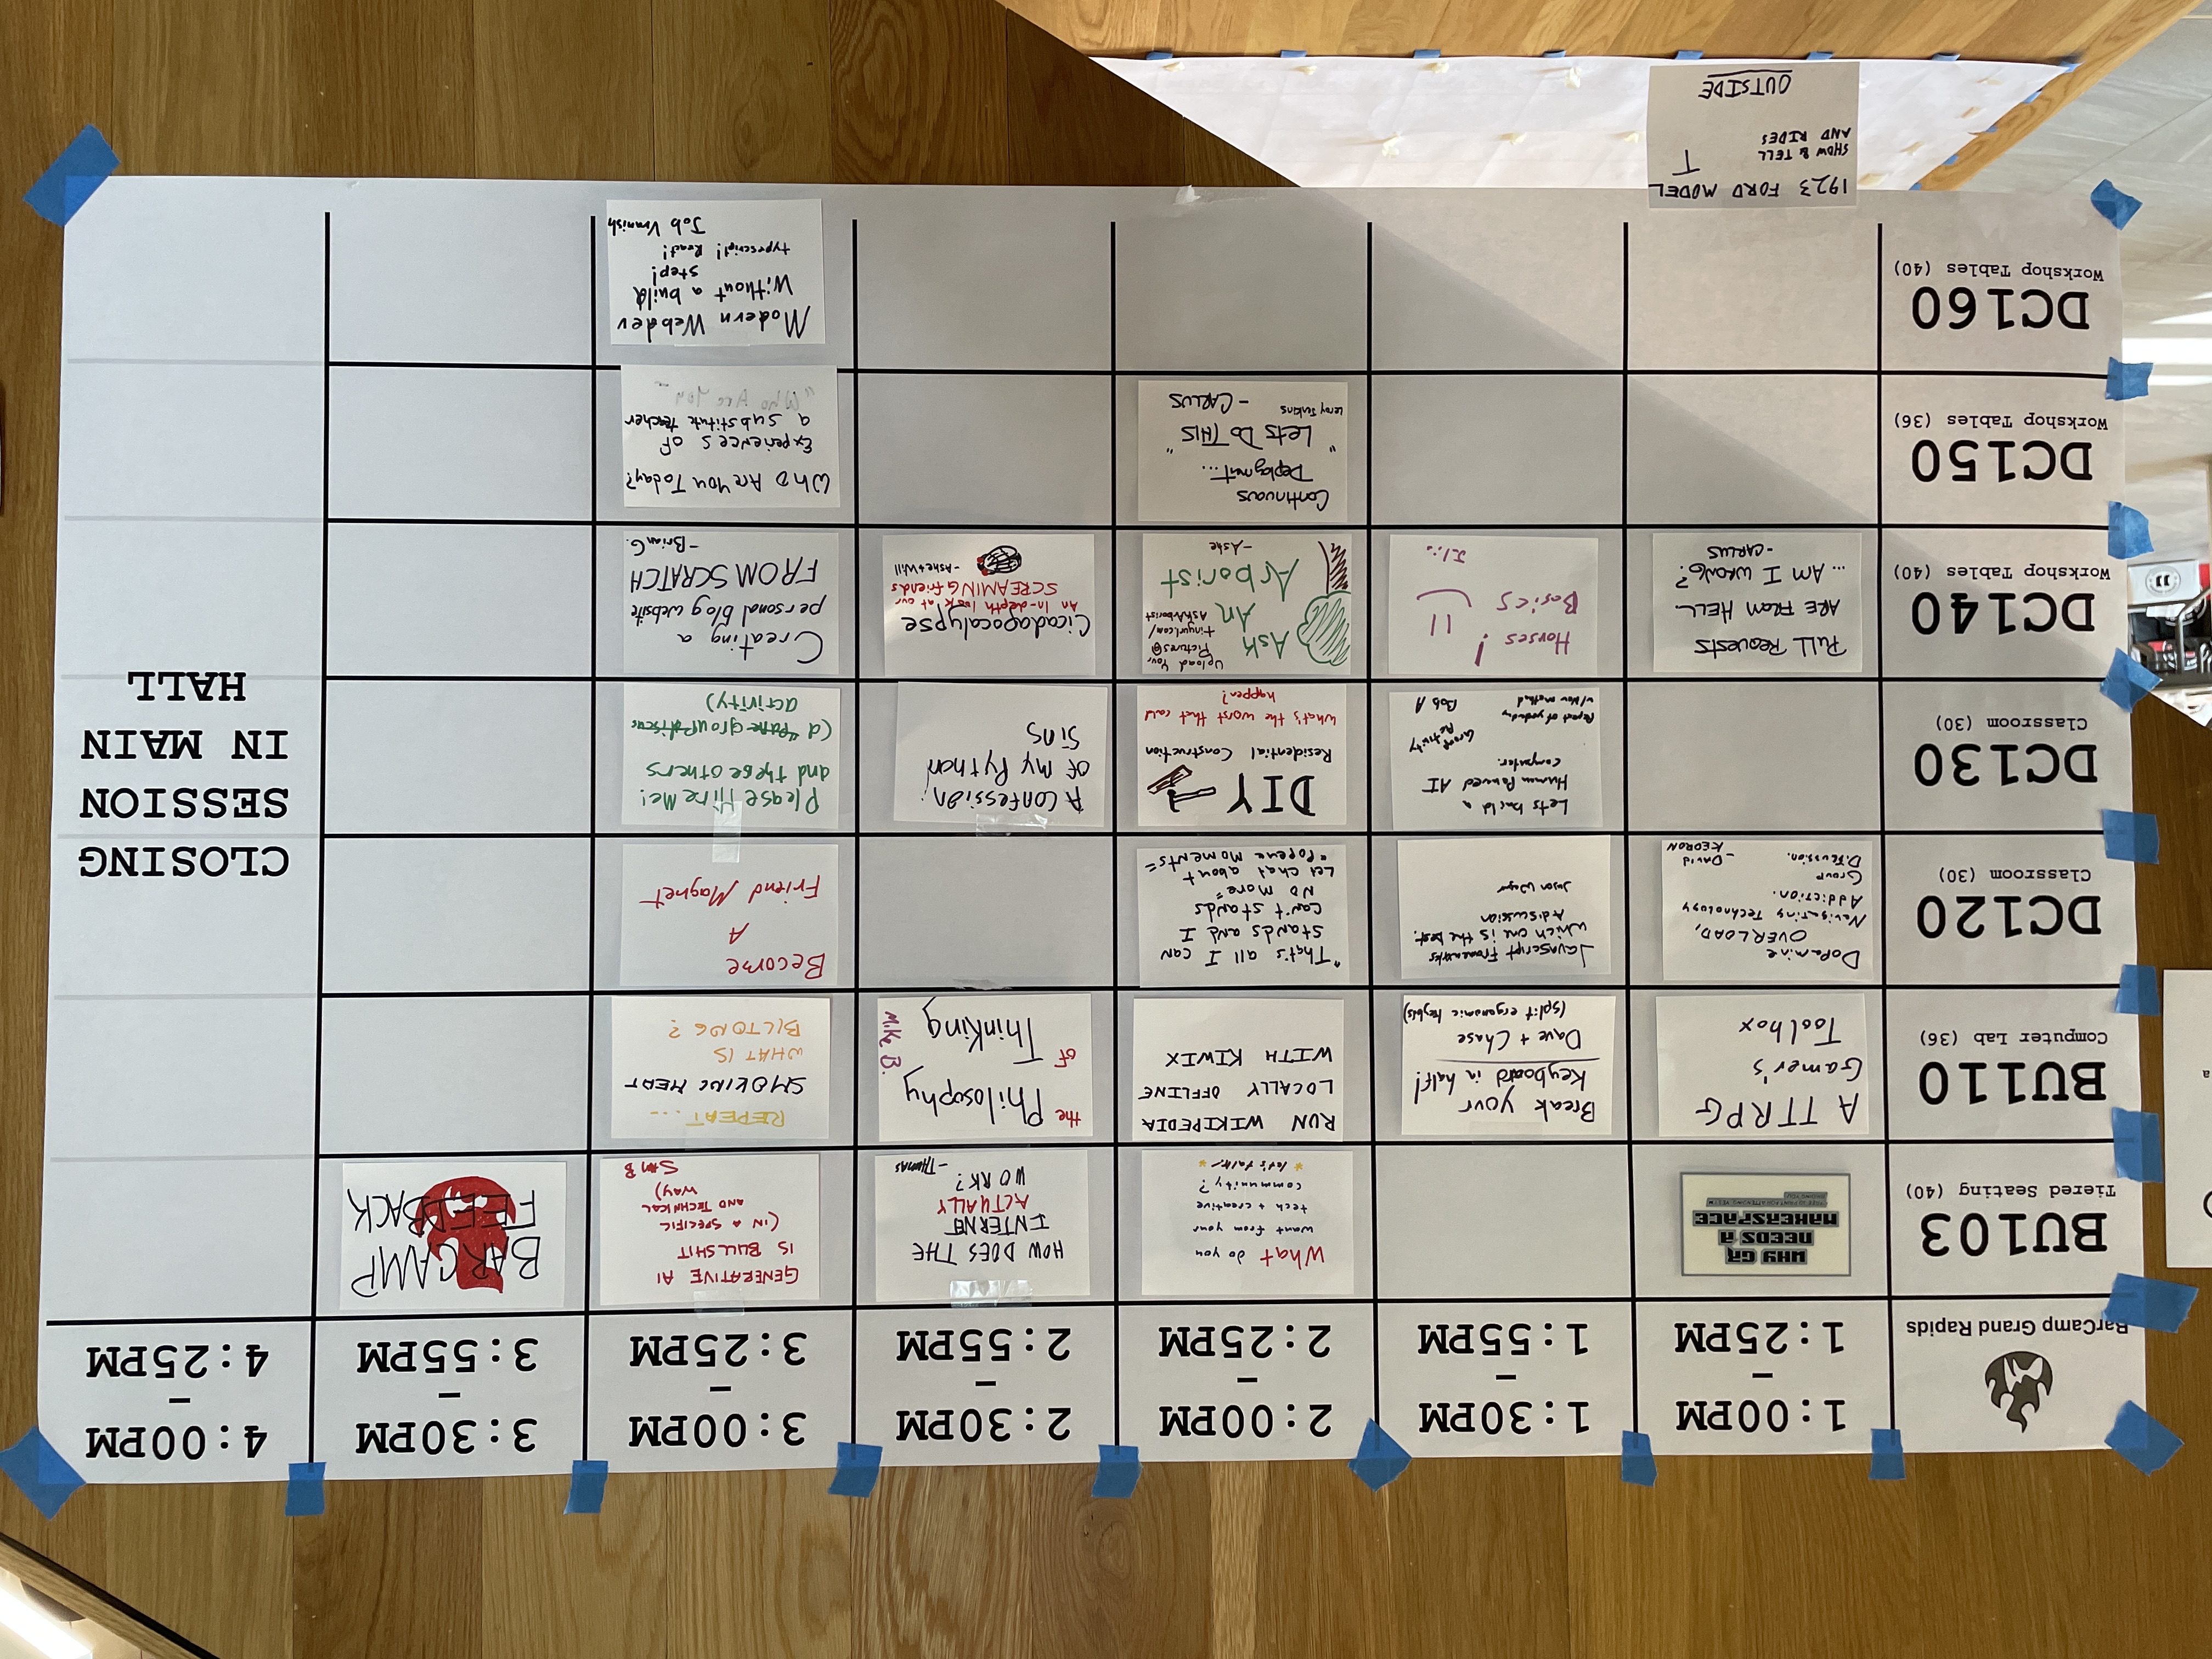 1:00PM
–
1:25PM
1:30PM
–
1:55PM
2:00PM
–
2:25PM
2:30PM
–
2:55PM
3:00PM
–
3:25PM
3:30PM
–
3:55PM
4:00PM
–
4:25PM
BarCamp Grand Rapids
BU103
Tiered Seating (40)
WHY GR
NEEDS A
MAKERSPACE
What do you
want from your
tech + creative
community?
* let's talk! *
HOW DOES THE
INTERNET
ACTUALLY
WORK?
-THOMAS
GENERATIVE AI
IS BULLSHIT
(IN A SPECIFIC
AND TECHNICAL
WAY)
Sam B
BARCAMP
FEEDBACK
BU110
Computer Lab (36)
A TTRPG
Gamer's
Toolbox
Break your
Keyboard in half!
Dave + Chase
(split ergonomic keybds)
RUN WIKIPEDIA
LOCALLY OFFLINE
WITH KIWIX
the Philosophy
of Thinking
Mike B.
REPEAT...
SMOKING MEAT
WHAT IS
BILTONG?
DC120
Classroom (30)
Dopamine
OVERLOAD,
Navigating Technology
Addiction.
Group
Discussion.
-David
KEDRON
Javascript Frameworks
which one is the best.
A discussion
Jason
"That's all I can
stands and I
can't stands
NO more"
Let chat about
"Popeye Moments"
Become
A
Friend Magnet
DC130
Classroom (30)
Lets build a
Human Powered AI
computer.
Group
Activity
Repeat of yesterday
w/New method
Bob A
DIY
Residential Construction
What's the worst that could
happen?
A Confession
of my Python
Sins
Please Hire Me!
and these others
(a group discus
activity)
DC140
Workshop Tables (40)
PULL REQUESTS
ARE FROM HELL.
... AM I WRONG?
-CARLUS
Horses!
Basics
Ask
An
Arborist
-Ashe
Upload Your
Pictures@
tinyurl.com/
AskArborist
Cicadapocalypse
An In-depth look at our
SCREAMING friends
-Ashe+Will
Creating a
personal blog website
FROM SCRATCH
-Brian G.
DC150
Workshop Tables (36)
Continuous
Deployment...
"Lets Do THIS"
Leroy Jenkins
- CARLUS
Who Are You Today?
Experiences of
a substitute teacher
"Who Are You
DC160
Workshop Tables (40)
Modern Webdev
Without a build
step!
typescript! React!
Job Vranish
CLOSING
SESSION
IN MAIN
HALL
1923 FORD MODEL
T
SHOW & TELL
AND RIDES
OUTSIDE